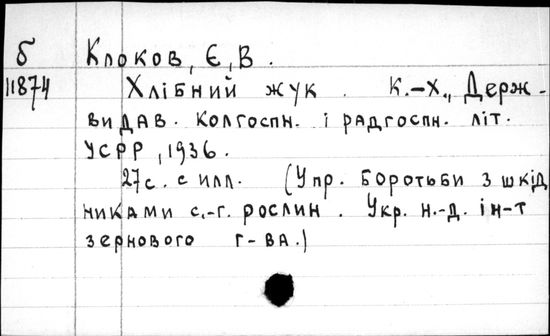 б Клоков, Є, В.
11874 Хлібний жук. К.-Х., Держ-
видав. колгоспн. і радгоспн. літ.
УСРР, 1936.
27с. с илл. (Упр. боротьби з шкід
никами с.-г. рослин. Укр. н.-д. ін-т
зернового г-ва.)